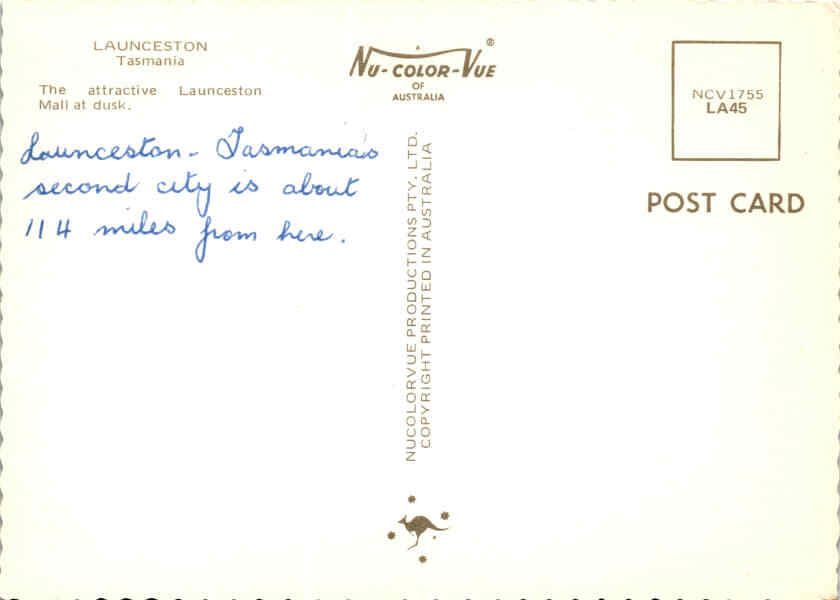 LAUNCESTON
Tasmania
The attractive Launceston
Mall at dusk.
Launceston - Tasmania's
second city is about
114 miles from here.
NU-COLOR-VUE ®
OF
AUSTRALIA
NUCOLORVUE PRODUCTIONS PTY. LTD.
COPYRIGHT PRINTED IN AUSTRALIA
NCV1755
LA45
POST CARD